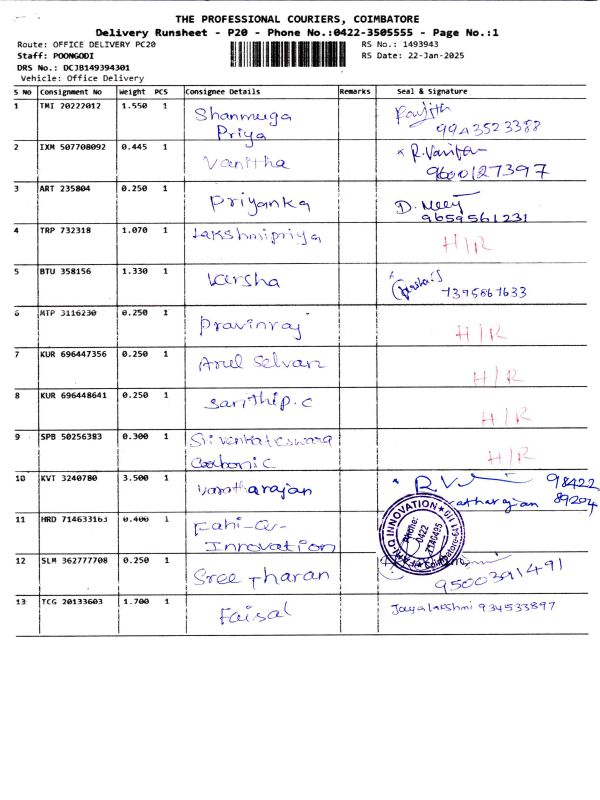 THE PROFESSIONAL COURIERS, COIMBATORE
Delivery Runsheet - P20 - Phone No.:0422-3505555 - Page No.:1
Route: OFFICE DELIVERY PC20
RS No.: 1493943
Staff: POONGODI
RS Date: 22-Jan-2025
DRS No.: DCJB149394301
Vehicle: Office Delivery
S No Consignment No Weight PCS Consignee Details Remarks Seal & Signature
1 TMI 20222012 1.550 1 Shanmuga Priya 9943523388
2 IXM 507708092 0.445 1 Vanitha R. 9600127397
3 ART 235804 0.250 1 Priyanka D. 9659561231
4 TRP 732318 1.070 1 Lakshmipriya H/R
5 BTU 358156 1.330 1 Varsha 7395867633
6 MTP 3116230 0.250 1 Pravinraj H/R
7 KUR 696447356 0.250 1 Arul Selvan H/R
8 KUR 696448641 0.250 1 H/R
9 SPB 50256383 0.300 1 Sri Venkateswara Carbonic H/R
10 KVT 3240780 3.500 1 Varatharajan R.V 98422 89204
11 HRD 714633163 0.400 1 Innovation INNOVATION Phone: 0422 Coimbatore
12 SLM 362777708 0.250 1 Sree Tharan 9500391491
13 TCG 20133603 1.700 1 Faisal Jayalakshmi 934533897